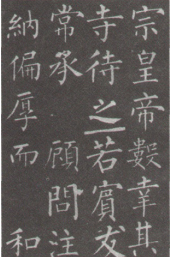 宗皇帝數幸其
寺待之若賓友
常承 顧問注
納偏厚而 和